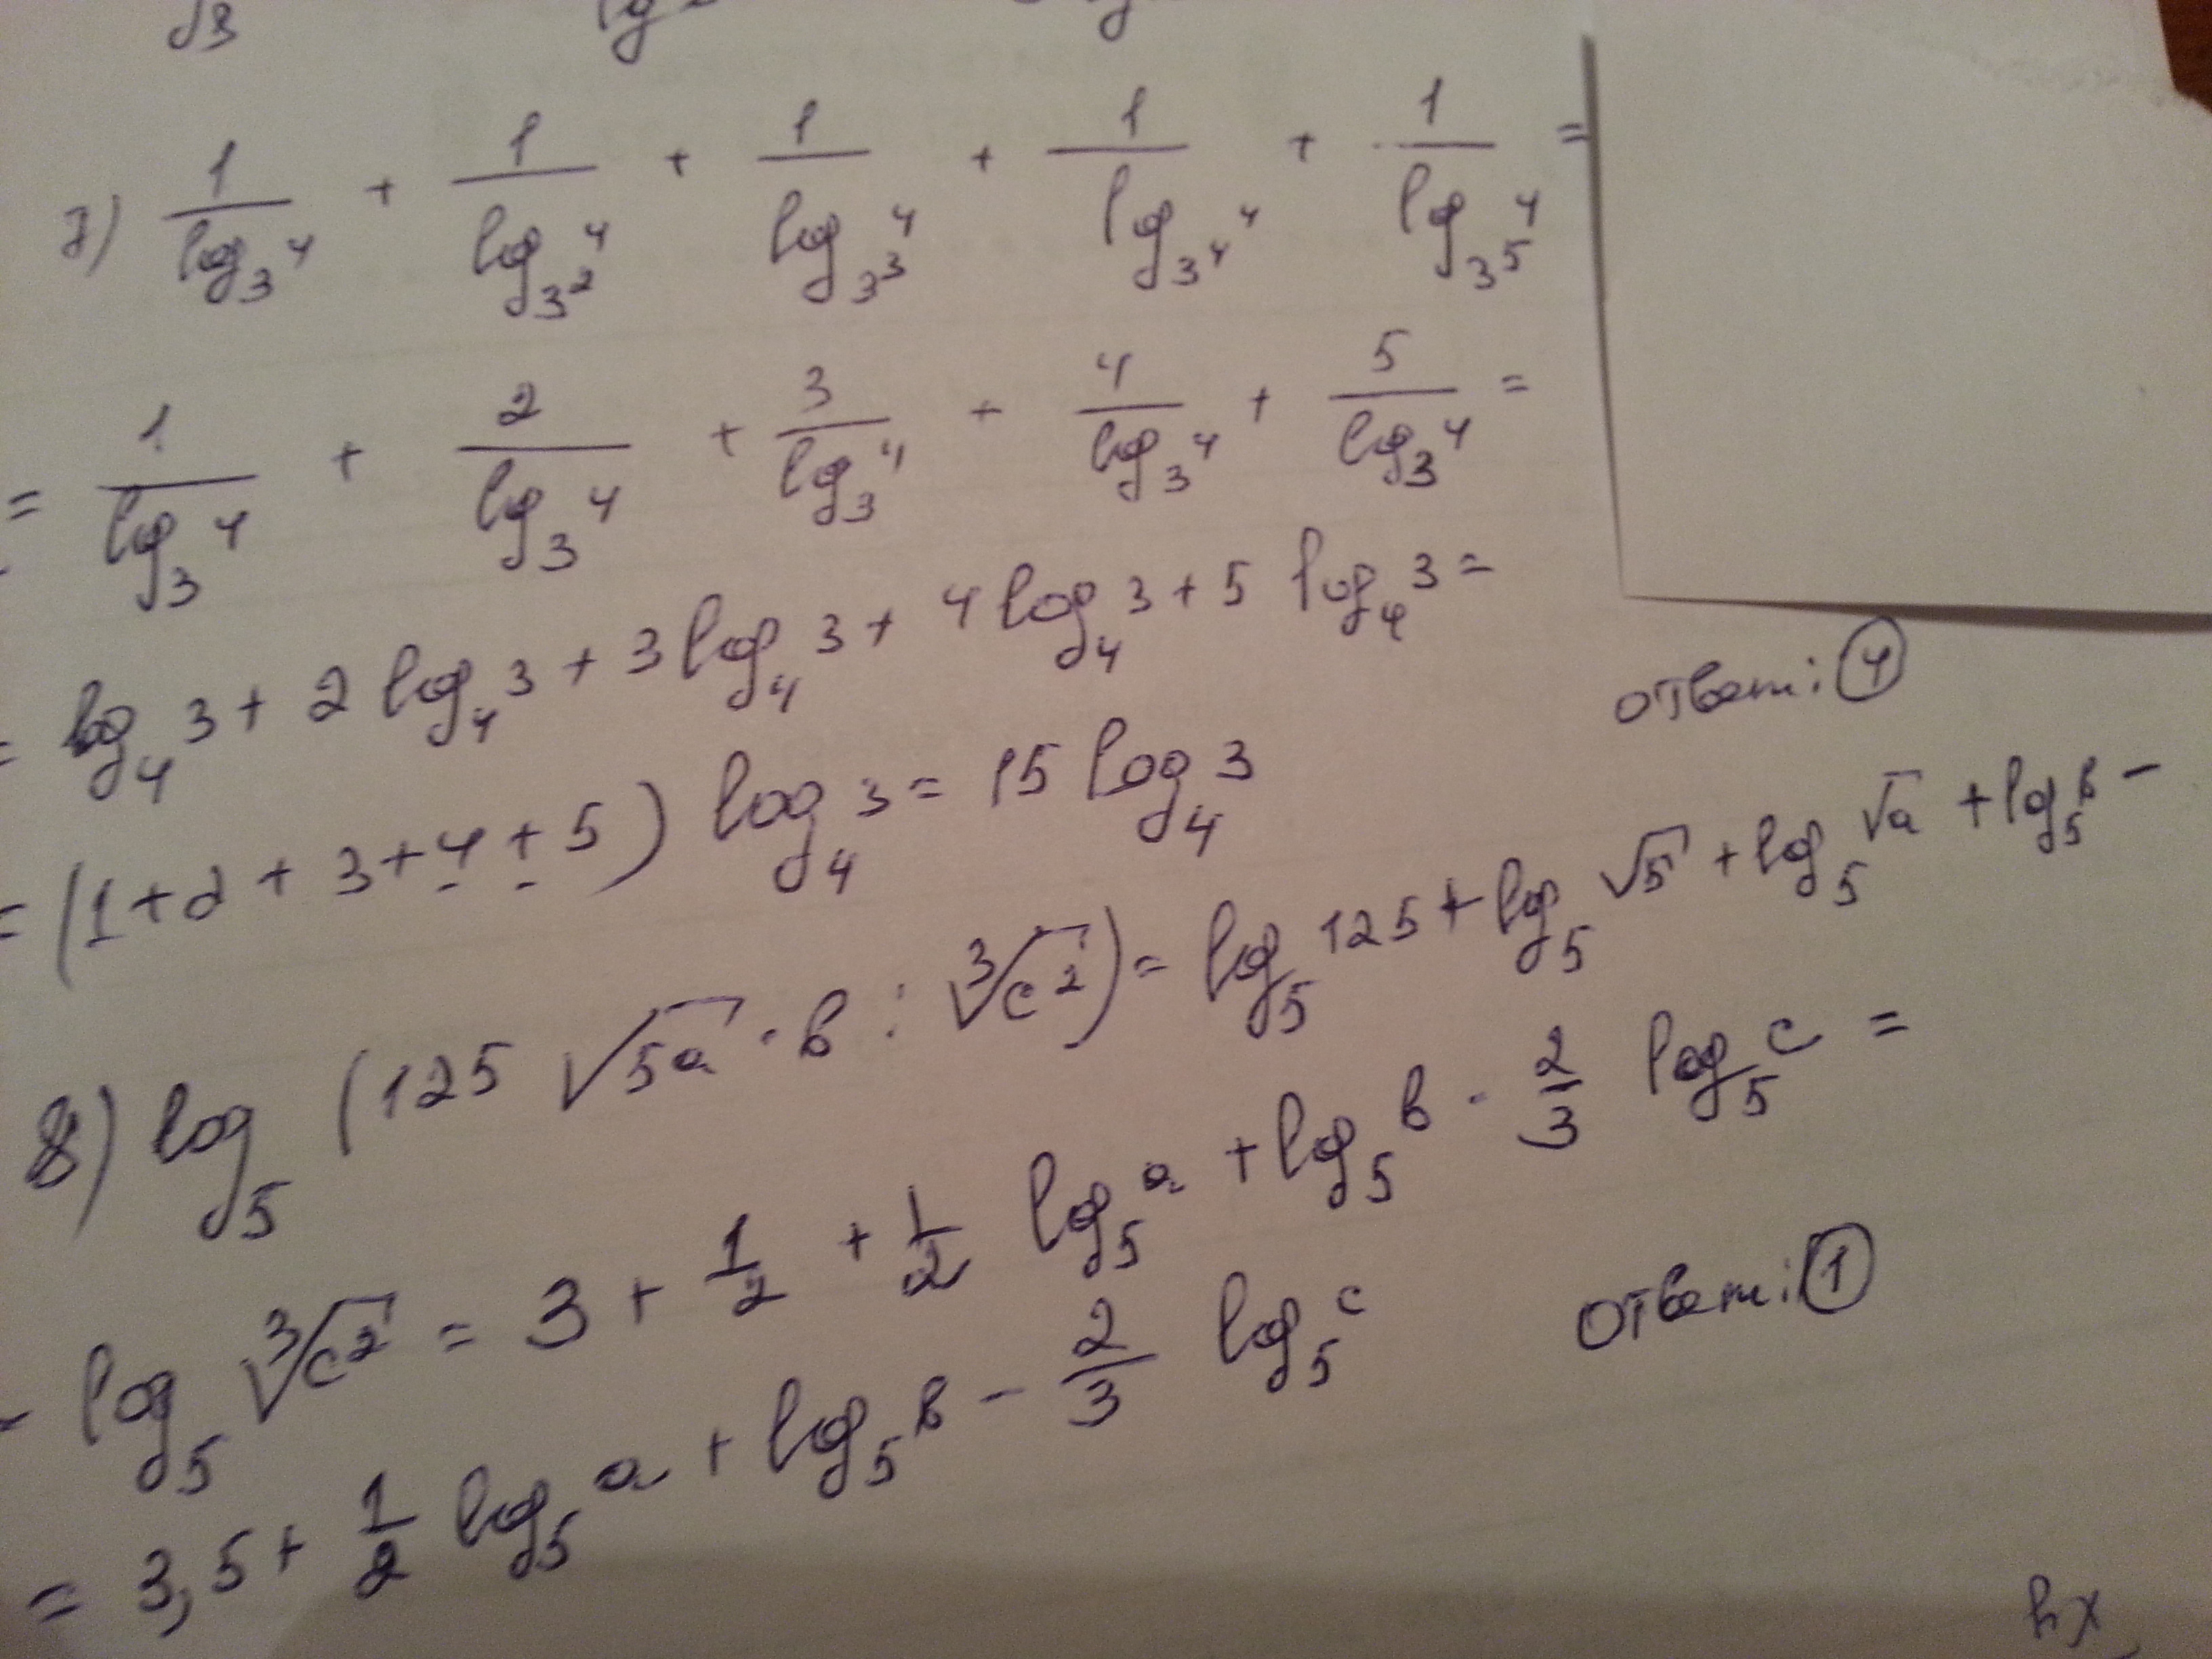 √3 lg
7) 1/log_3 4 + 1/log_{3^2} 4 + 1/log_{3^3} 4 + 1/log_{3^4} 4 + 1/log_{3^5} 4 =
= 1/log_3 4 + 2/log_3 4 + 3/log_3 4 + 4/log_3 4 + 5/log_3 4 =
= log_4 3 + 2 log_4 3 + 3 log_4 3 + 4 log_4 3 + 5 log_4 3 =
= (1+2+3+4+5) log_4 3 = 15 log_4 3
ответ: 4
8) log_5 (125 √(5a) · b : ∛(c^2)) = log_5 125 + log_5 √5 + log_5 √a + log_5 b −
− log_5 ∛(c^2) = 3 + 1/2 + 1/2 log_5 a + log_5 b - 2/3 log_5 c =
= 3,5 + 1/2 log_5 a + log_5 b − 2/3 log_5 c
Ответ: 1